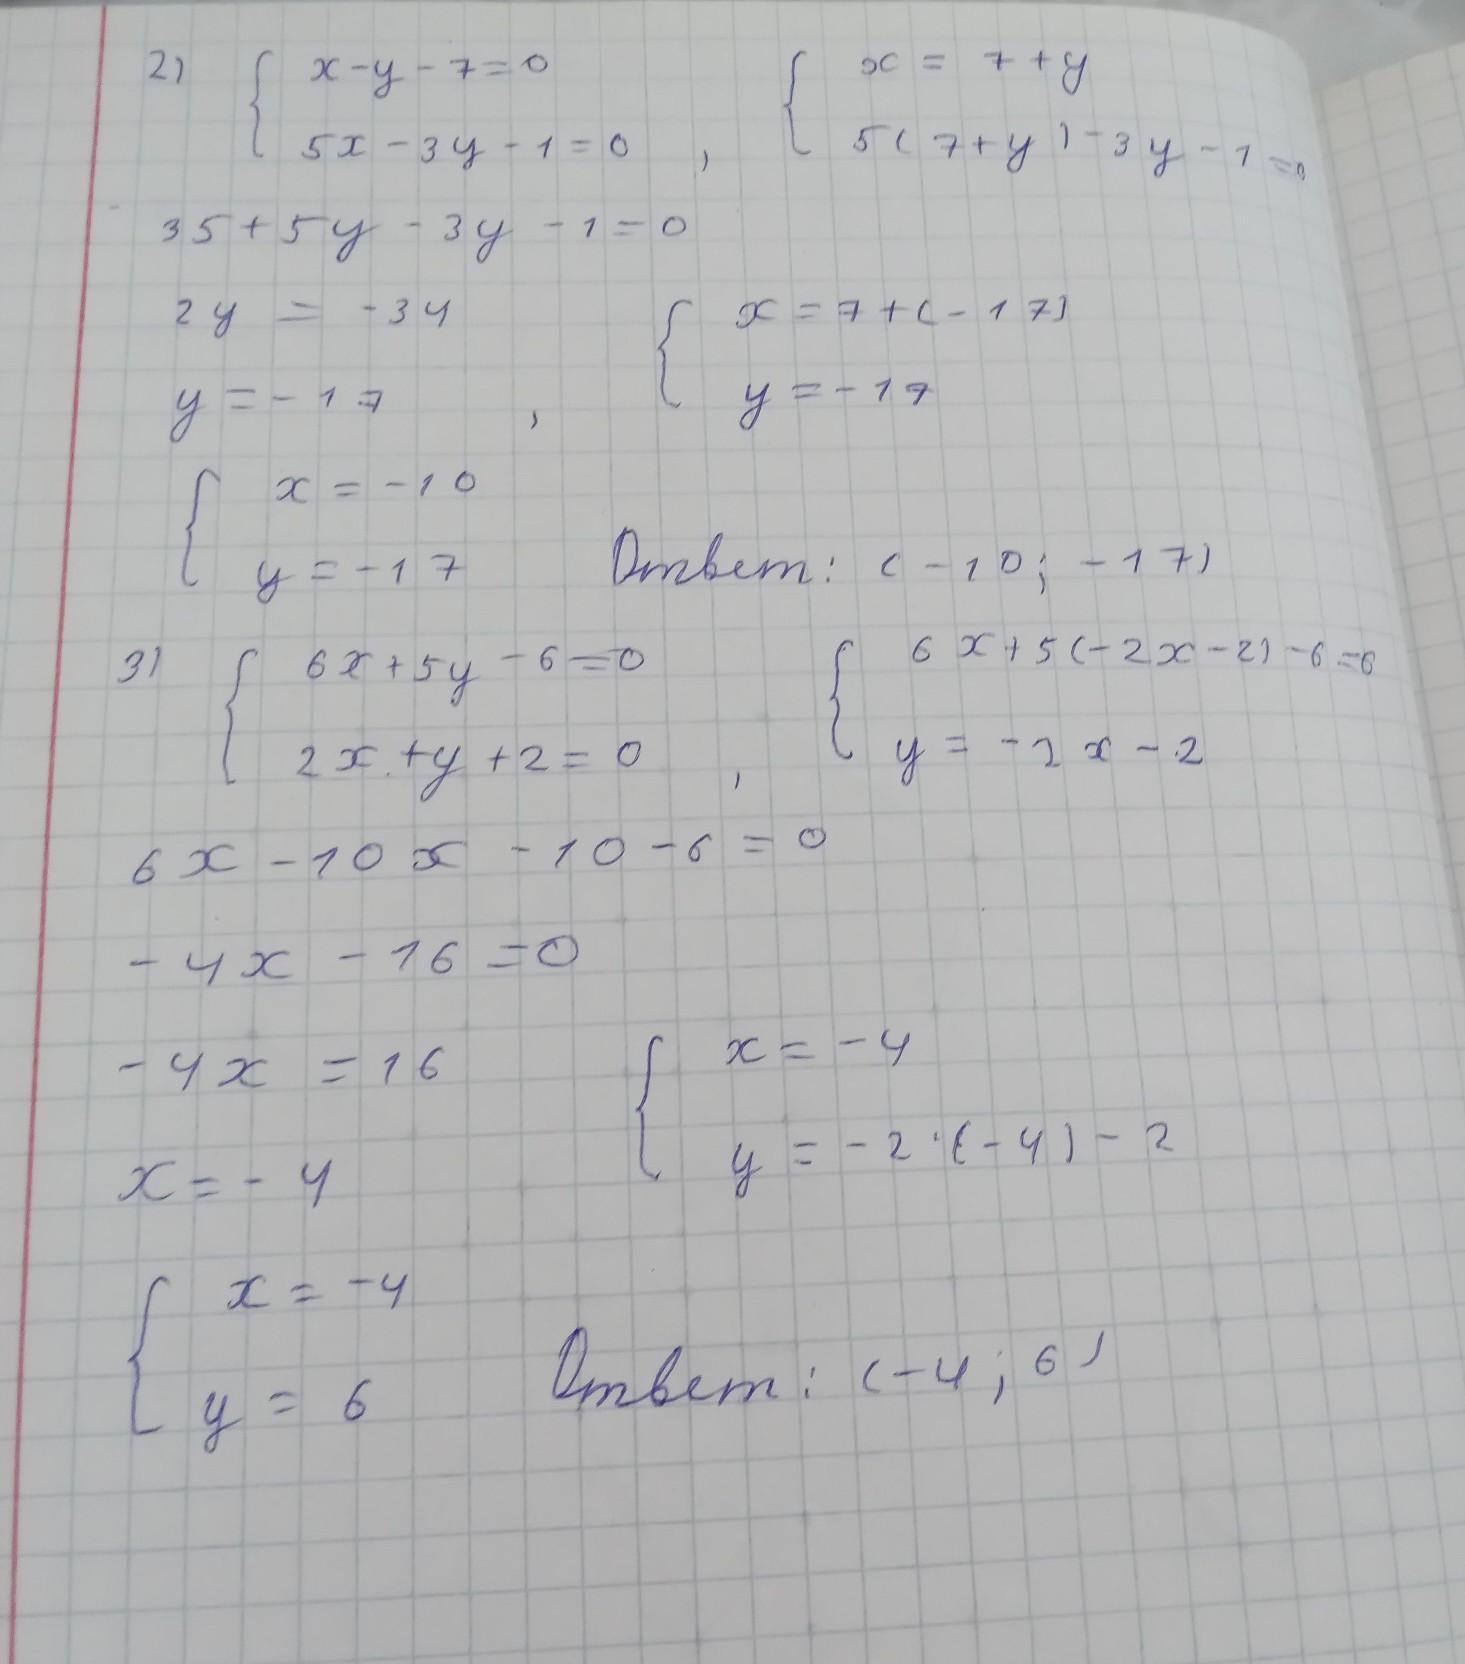 2) { x-y-7=0 { x = 7+y
5x-3y-1=0 , 5(7+y)-3y-1=0
35+5y-3y-1=0
2y = -34 { x=7+(-17)
y=-17 , y=-17
{ x=-10
y=-17 Ответ: (-10; -17)
3) { 6x+5y-6=0 { 6x+5(-2x-2)-6=0
2x+y+2=0 , y=-2x-2
6x-10x-10-6=0
-4x-16=0
-4x=16 { x=-4
x=-4 y=-2·(-4)-2
{ x=-4
y=6 Ответ: (-4; 6)